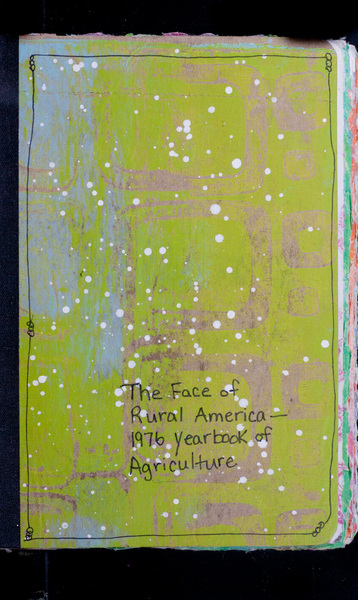 The Face of
Rural America—
1976 Yearbook of
Agriculture